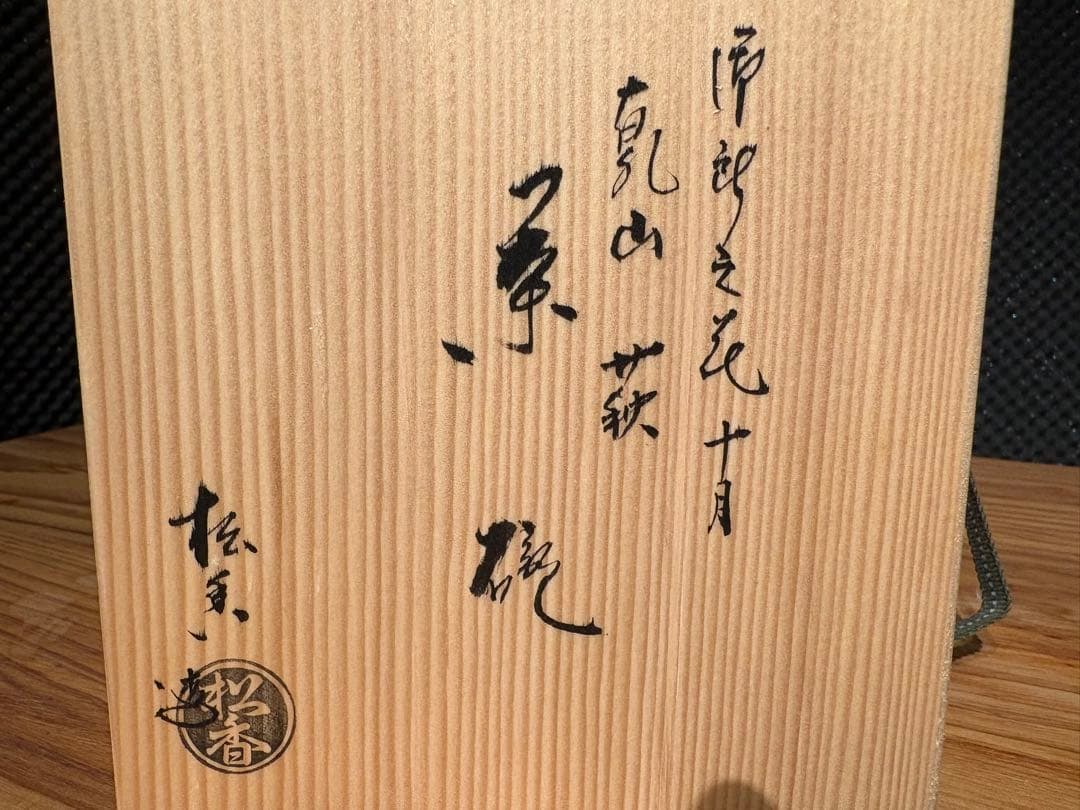 之花 十月
乾山 萩
茶 碗
松香 造
松香